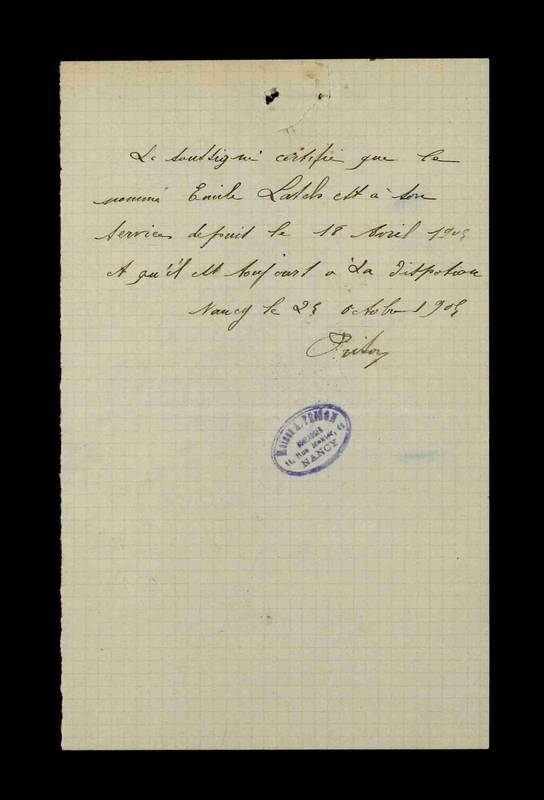 Le soussigné certifie que le
nommé Emile Latch est à son
services depuit le 18 Avril 1905
et qu'il est toujourt a la dispotion
Nancy le 25 octobre 1905
MAISON A. FRISON
11, Rue
NANCY